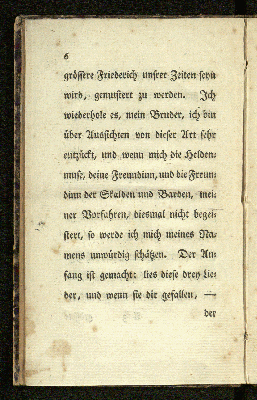 6
grössere Friederich unsrer Zeiten seyn
wird, gemustert zu werden. Ich
wiederhole es, mein Bruder, ich bin
über Aussichten von dieser Art sehr
entzückt, und wenn mich die Helden-
muse, deine Freundinn, und die Freun-
dinn der Skalden und Barden, mei-
ner Vorfahren, diesmal nicht begei-
stert, so werde ich mich meines Na-
mens unwürdig schätzen. Der An-
fang ist gemacht: lies diese drey Lie-
der, und wenn sie dir gefallen, —
der